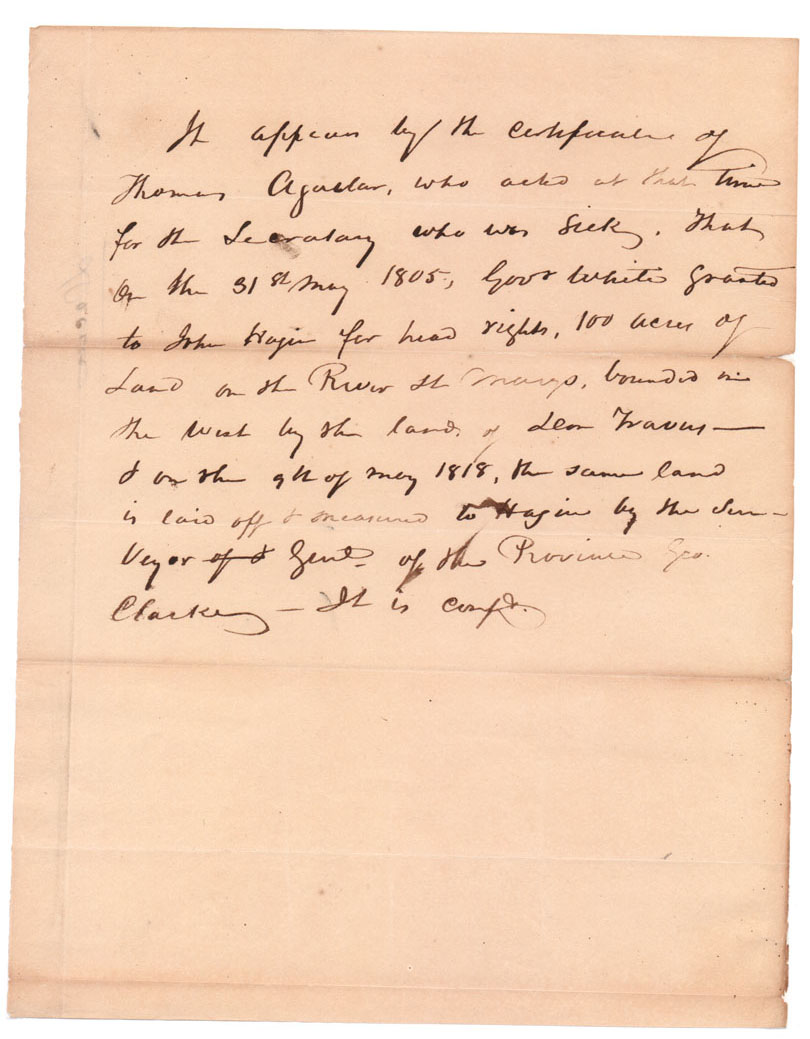 It appears by the certificate of
Thomas Aguilar, who acted at that time
for the Secratary who was Sick, that
on the 31st May 1805, Govr White granted
to John Hagin for head rights, 100 acres of
Land on the River St Marys, bounded on
the West by the land of Travers —
& on the 9th of May 1818, the same land
is laid off & measured to Hagin by the Sur-
veyor of & Genl. of the Province Geo.
Clarke — It is confd.